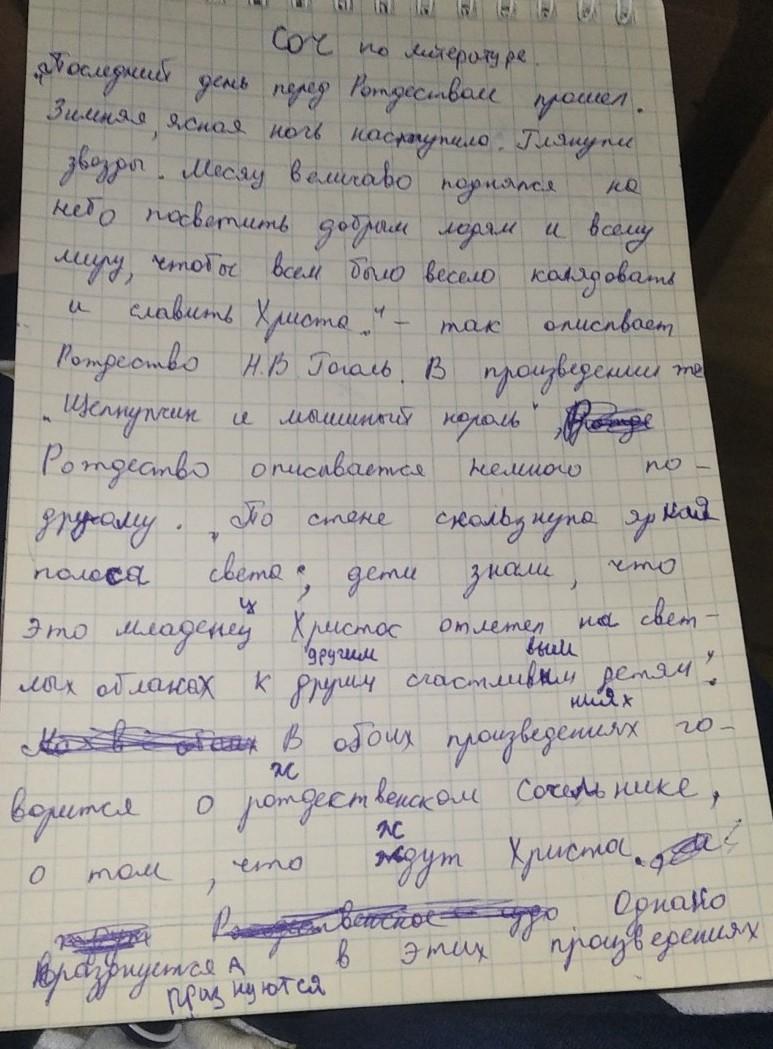 СОЧ по литературе.
„Последний день перед Рождеством прошел.
Зимняя, ясная ночь наступило. Глянули
звезды. Месяц величаво поднялся на
небо посветить добрым людям и всему
миру, чтобы всем было весело колядовать
и славить Христа." – так описывает
Рождество Н.В Гоголь. В произведении же
„Щелкунчик и мышиный король",
Рождество описывается немного по-
другому. „По стене скользнула яркая
полоса света", дети знали, что
это младенец Христос отлетел на свет-
лых облаках к другим счастливым детям".
другим вым
В обоих произведениях го-
ниях
ворится о рождественском Сочельнике,
ж
о том, что ждут Христа.
ж
Однако
празднуется в этих произведениях
празднуются